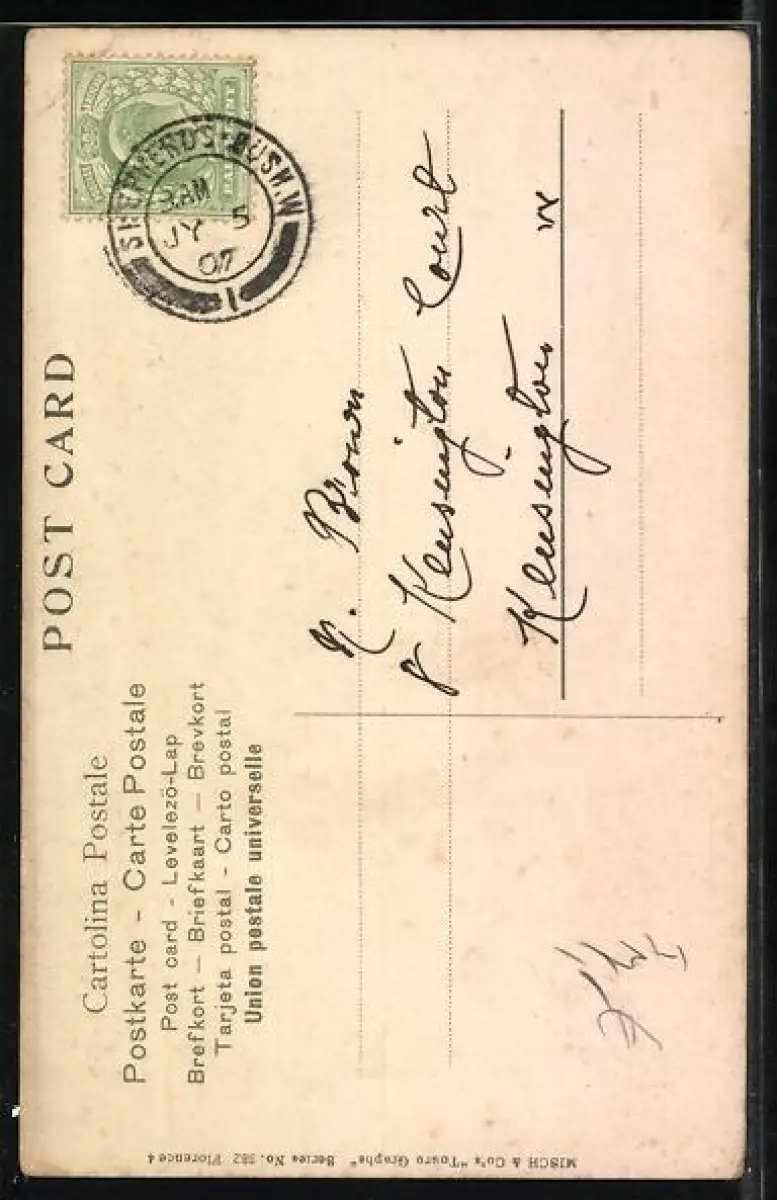 POST CARD
Cartolina Postale
Postkarte - Carte Postale
Post card - Levelezö-Lap
Brefkort — Briefkaart — Brevkort
Tarjeta postal - Carto postal
Union postale universelle
SHEPHERD'S·BUSH.W
3.AM
JY 5
07
1
HALFPENNY
Brown
8 Kensington Court
Kensington
W
MISCH & Co's "Touro Graphs" Series No. 382 Florence 4